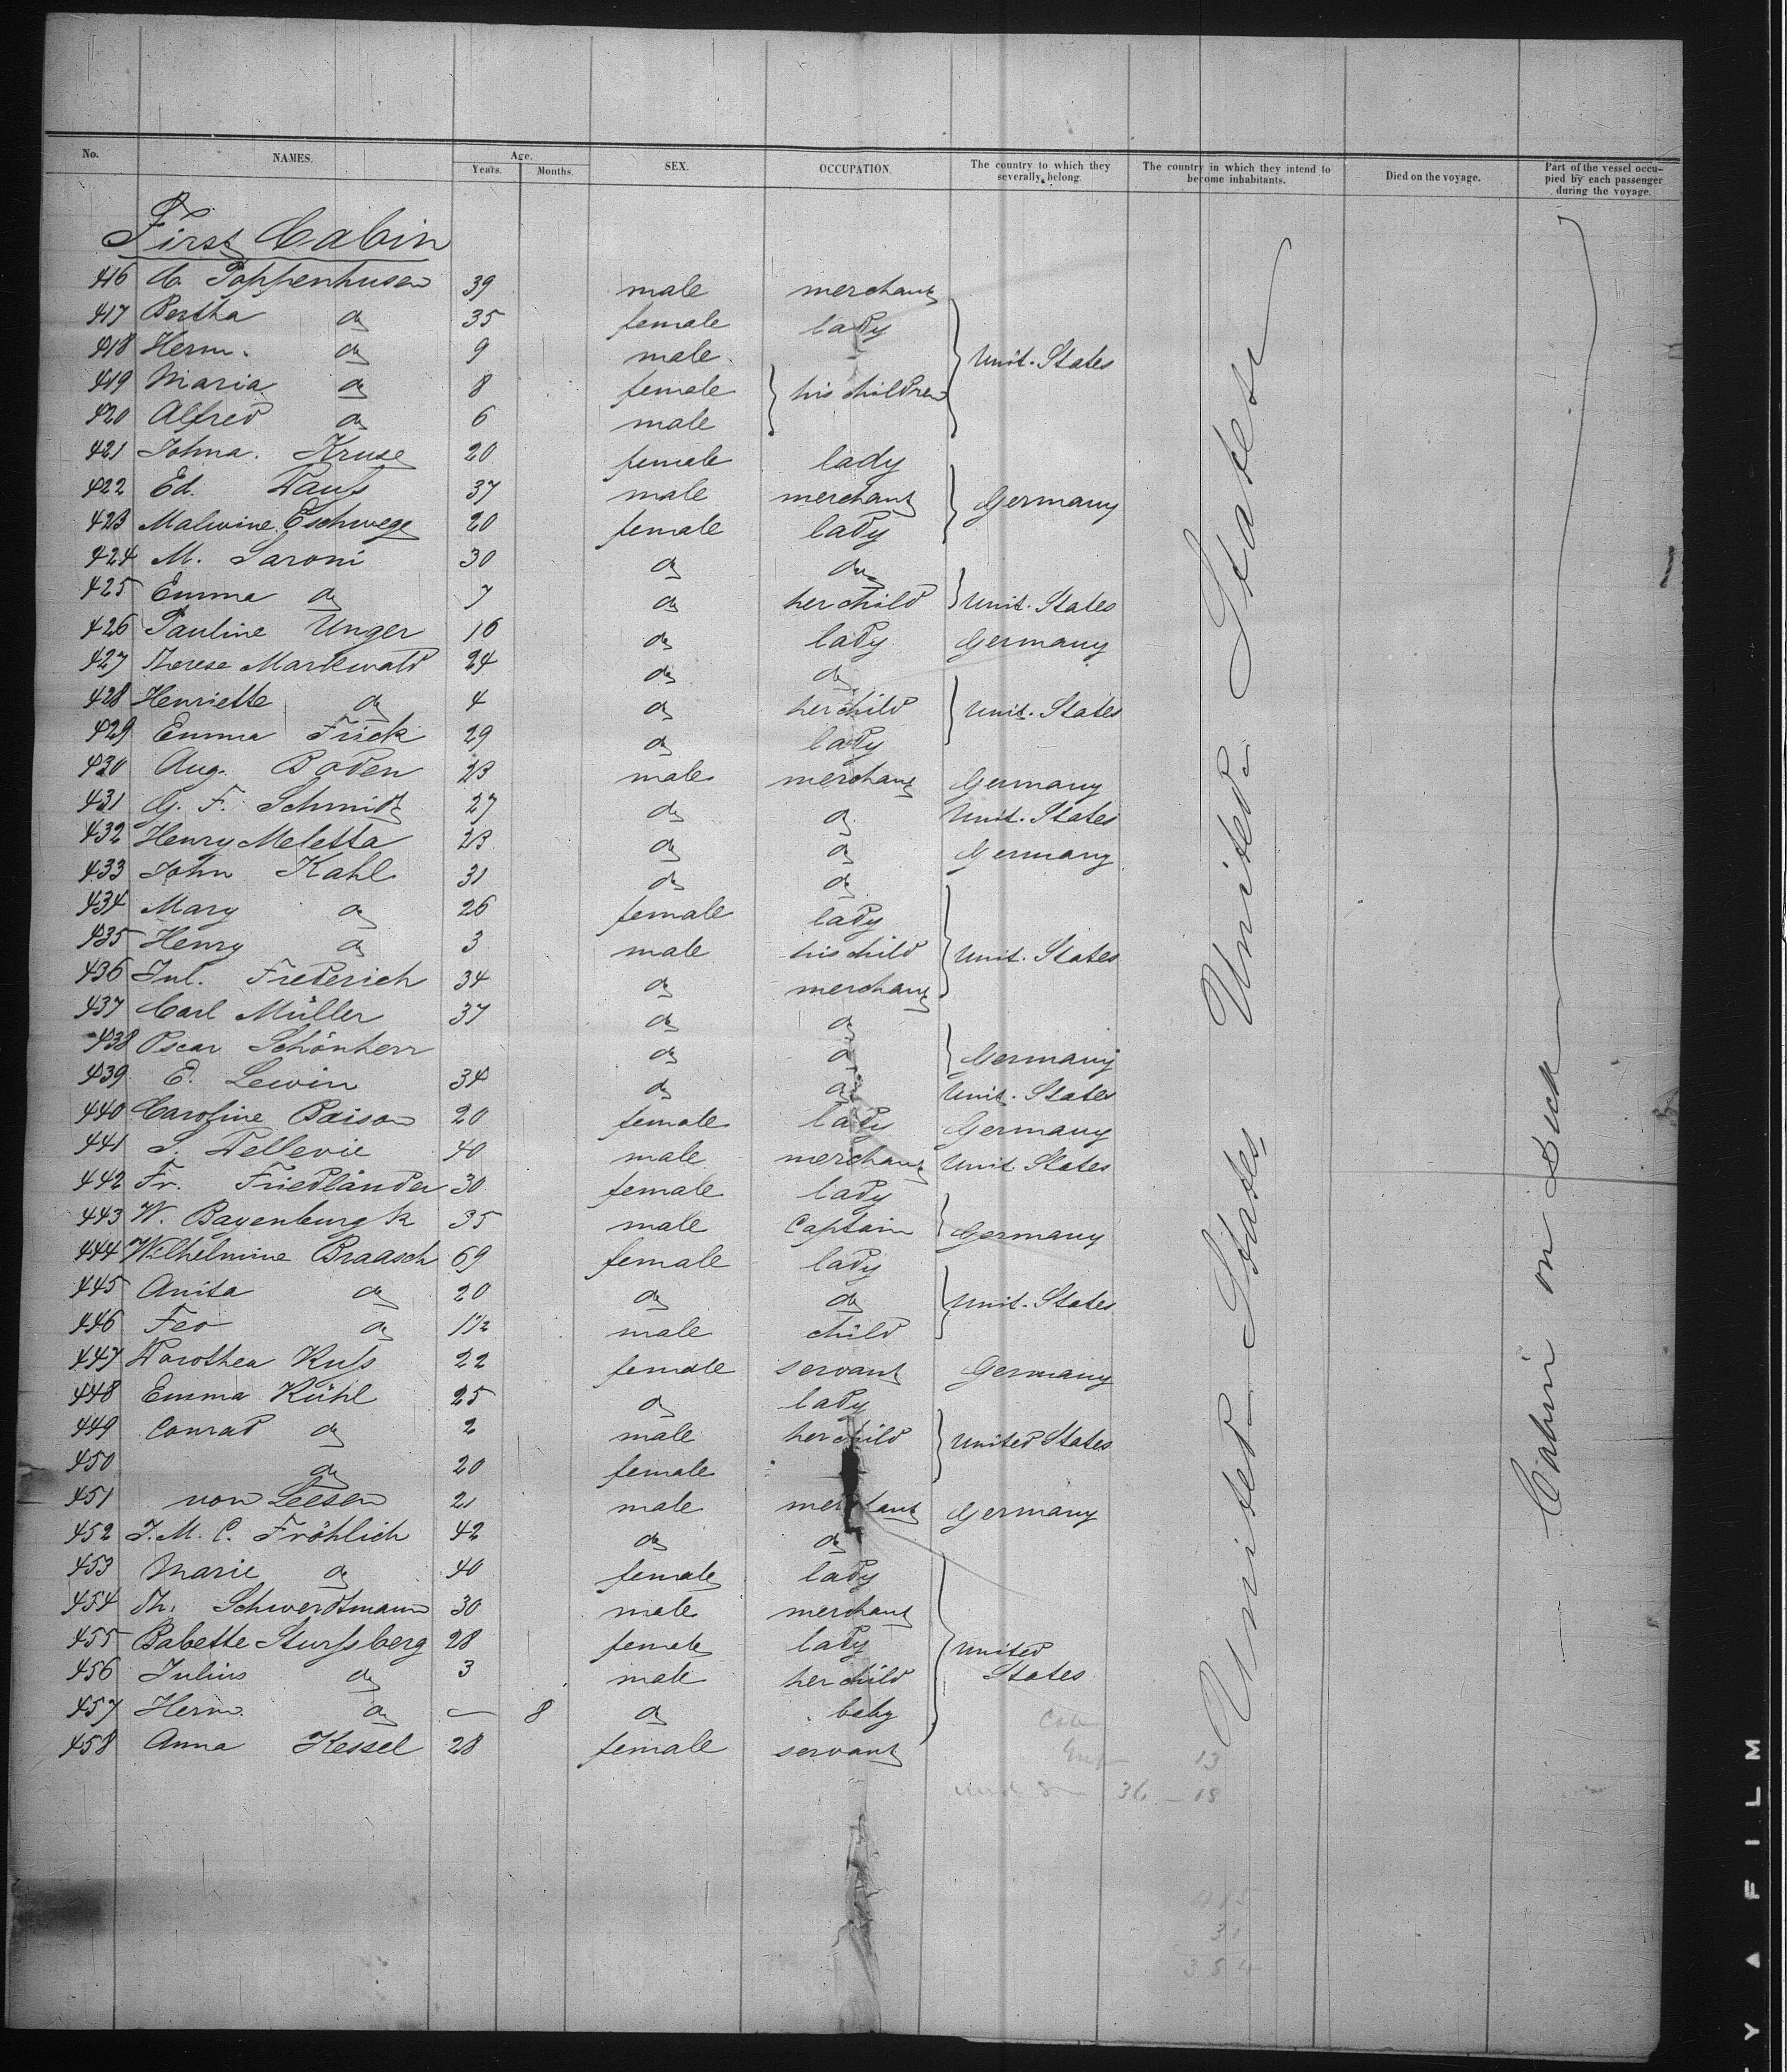 No. NAMES. Age. SEX. OCCUPATION. The country to which they severally belong. The country in which they intend to become inhabitants. Died on the voyage. Part of the vessel occupied by each passenger during the voyage.
Years. Months.
First Cabin
416 C. Poppenhusen 39 male merchant
417 Bertha do 35 female lady
418 Herm. do 9 male Unit. States
419 Maria do 8 female his children
420 Alfred do 6 male
421 Johna. Kruse 20 female lady
422 Ed. 37 male merchant Germany
423 Malwine Eschwege 20 female lady
424 M. Saroni 30 do do
425 Emma do 7 do her child Unit. States
426 Pauline Unger 16 do lady Germany
427 Therese Markwald 24 do do
428 Henriette do 4 do her child Unit. States
429 Emma Frick 29 do lady
430 Aug. Boden 23 male merchant Germany
431 G. F. Schmidt 27 do do Unit. States
432 Henry Meletta 23 do do Germany
433 John Kahl 31 do do
434 Mary do 26 female lady
435 Henry do 3 male his child Unit. States
436 Jul. Frederich 34 do merchant
437 Carl Müller 37 do do
438 Oscar Schönherr do do Germany
439 E. Lewin 34 do do Unit. States
440 Caroline Baison 20 female lady Germany
441 S. Dellevie 40 male merchant Unit. States
442 Fr. Friedländer 30 female lady
443 W. Bayenburgk 35 male Captain Germany
444 Wilhelmine Braasch 69 female lady
445 Anita do 20 do do Unit. States
446 Feo do 1 1/2 male child
447 Dorothea Kuſs 22 female servant Germany
448 Emma Kühl 25 do lady
449 Conrad do 2 male her child United States
450 do 20 female
451 von Leesen 21 male merchant Germany
452 J. M. C. Fröhlich 42 do do
453 Marie do 40 female lady
454 Th. Schwerdtmann 30 male merchant
455 Babette Sturſsberg 28 female lady United
456 Julius do 3 male her child States
457 Herm. do — 8 do baby
458 Anna Kessel 28 female servant
United States United States
— Cabin on Deck —
13
36 — 18
31
384
FILM